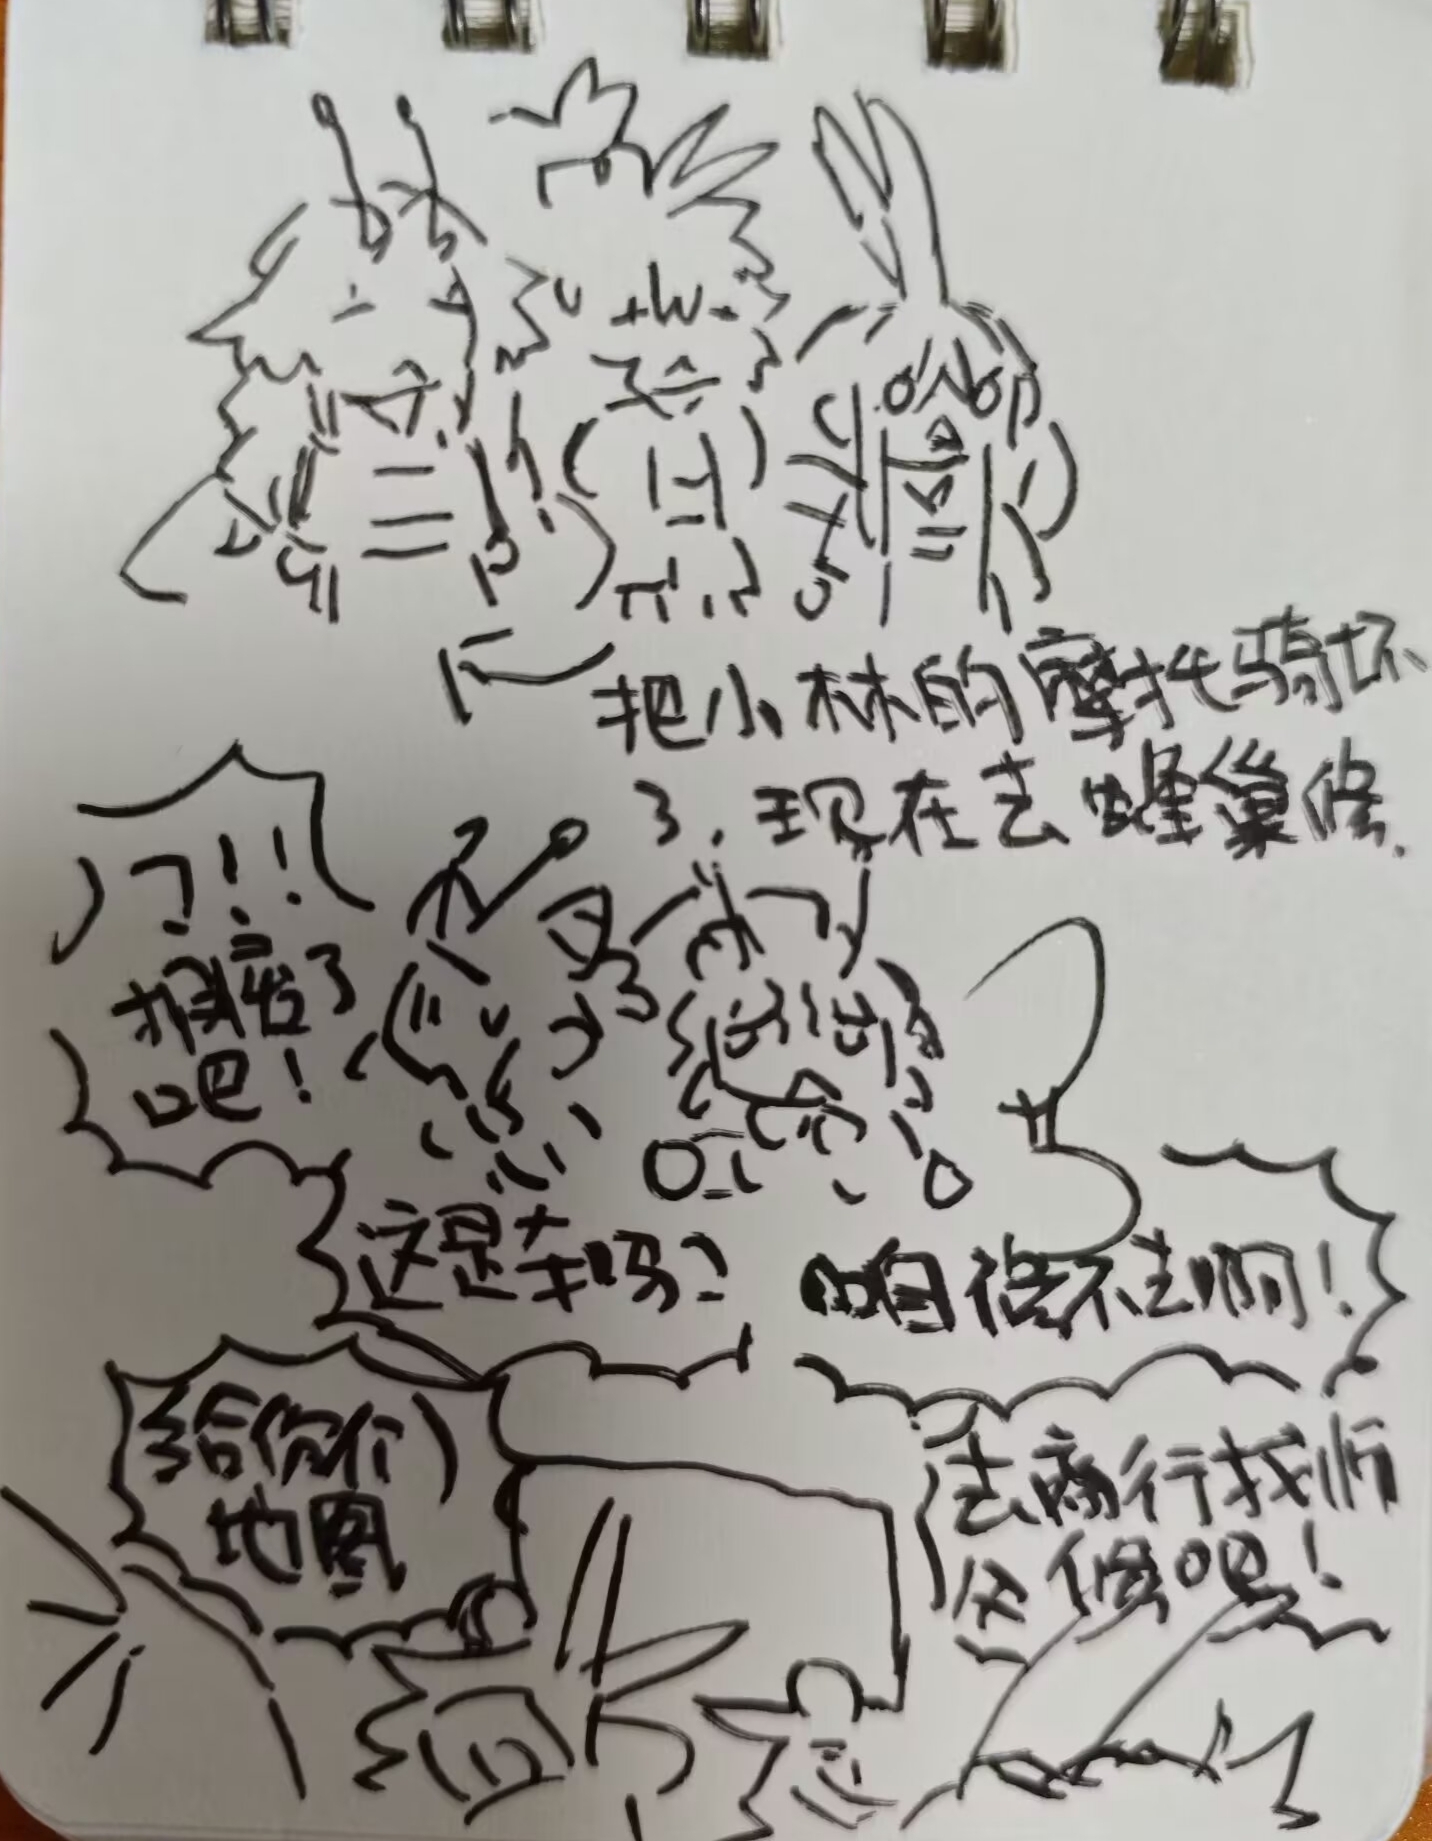 把小林的摩托骑坏
了，现在去蜂巢修.
了!!
报废了
吧！
这是车吗？
咱修不去啊！
给你个
地图
去商行找师
父修吧！